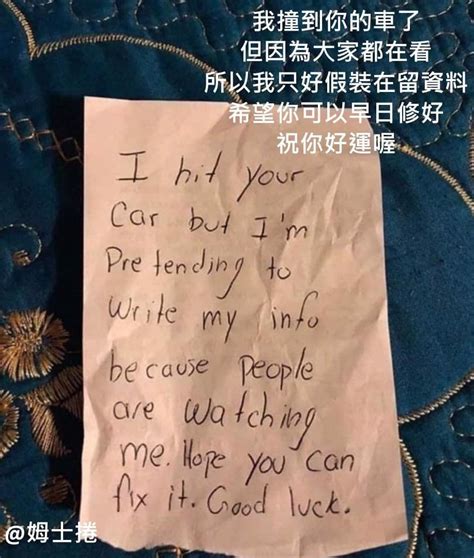 我撞到你的車了
但因為大家都在看
所以我只好假裝在留資料
希望你可以早日修好
祝你好運喔
I hit your
Car but I'm
Pretending to
Write my info
because people
are watching
me. Hope you can
fix it. Good luck.
@姆士捲